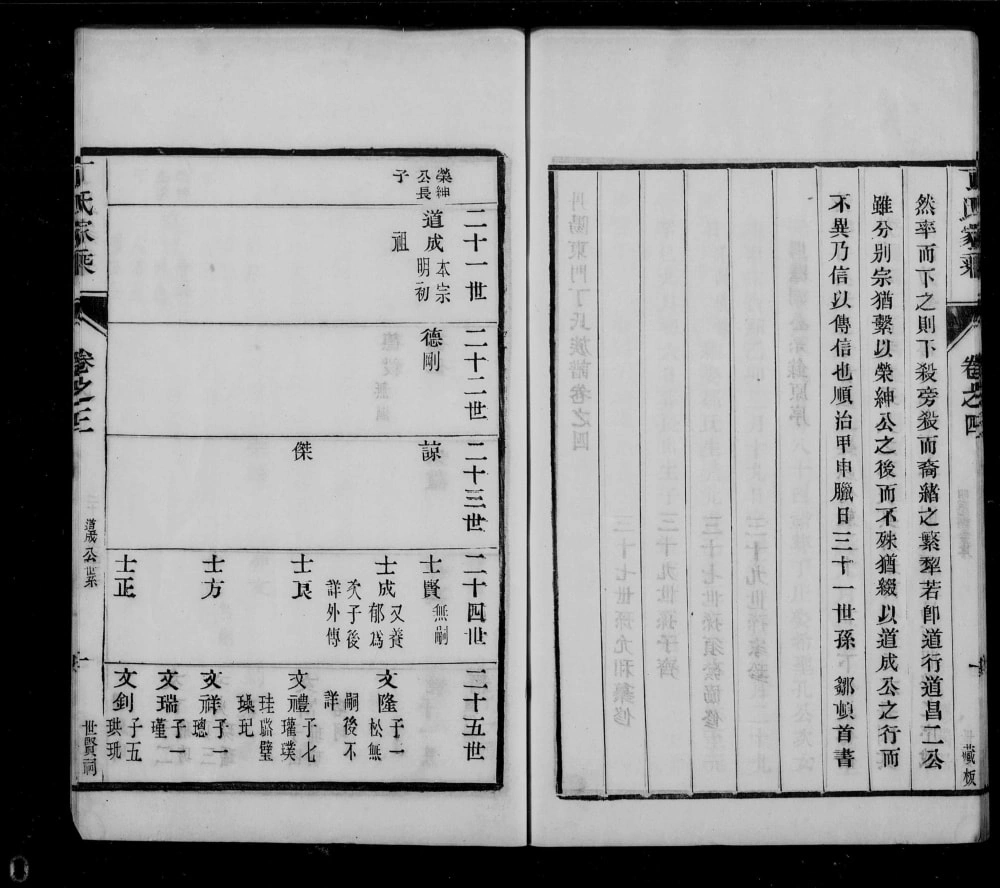 然率而下之則下殺旁殺而裔緒之繁犂若卽道行道昌二公
雖分别宗猶繫以榮紳公之後而不殊猶綴以道成公之行而
不異乃信以傳信也順治甲申臘日三十一世孫下鄒頓首書
丁氏家乘
卷之四
一
藏板
榮紳
公長
子
二十一世
道成
本宗
明初
祖
二十二世
德剛
二十三世
諒
傑
二十四世
士賢
無嗣
士成
又養
郁爲
次子後
詳外傳
士良
士方
士正
二十五世
文隆
子一
松無
嗣後不
詳
文禮
子七
瓘璞
珪璐璧
璪玘
文祥
子一
璁
文瑞
子一
瑾
文釗
子五
珙玭
丁氏家乘
卷之三
道成公系
一
世賢祠